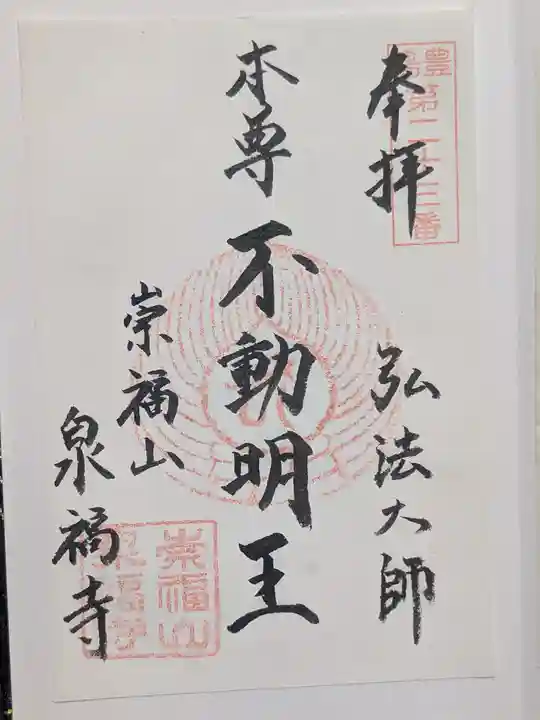 豊島
第二十三番
奉拝
弘法大師
本尊 不動明王
崇福山
泉福寺
崇福山
泉福寺